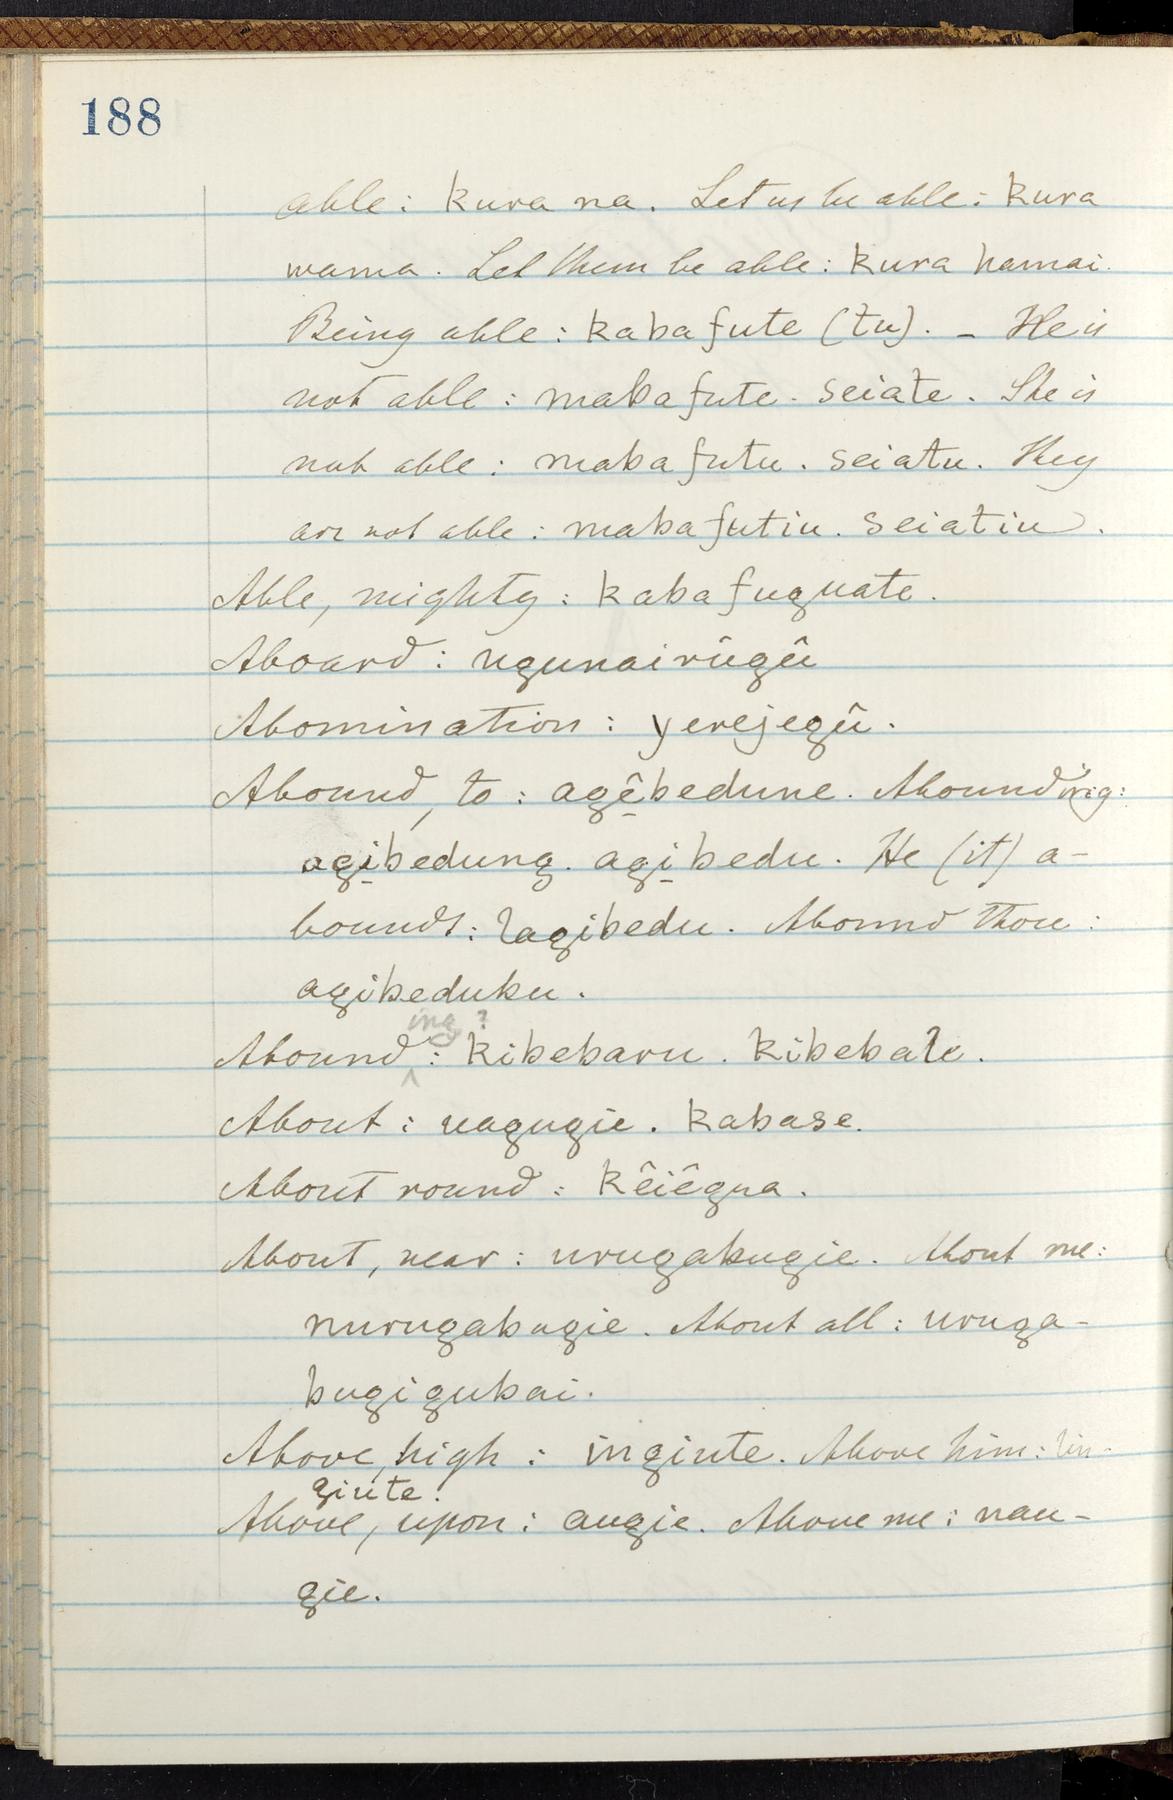 188
able: kura na. Let us be able: kura
wama. Let them be able: kura hamai.
Being able: kabafute (tu). – He is
not able: mabafute. seiate. She is
not able: mabafutu. seiatu. They
are not able: mabafutiu. seiatiu.
Able, mighty: kabafuguate.
Aboard: ngunairûgû
Abomination: yerejegû.
Abound, to: agêbedune. Abounding:
agibedung. agibedu. He (it) a-
bounds: lagibedu. Abound thou:
agibeduku.
Abounding?: kibebaru. kibebale.
About: uagugie. kabase.
About round: kêiêgua.
About, near: urugabugie. About me:
nurugabugie. About all: uruga-
bugigubai.
Above, high: ingiute. Above him: lin-
giute.
Above, upon: augie. Above me: nau-
gie.